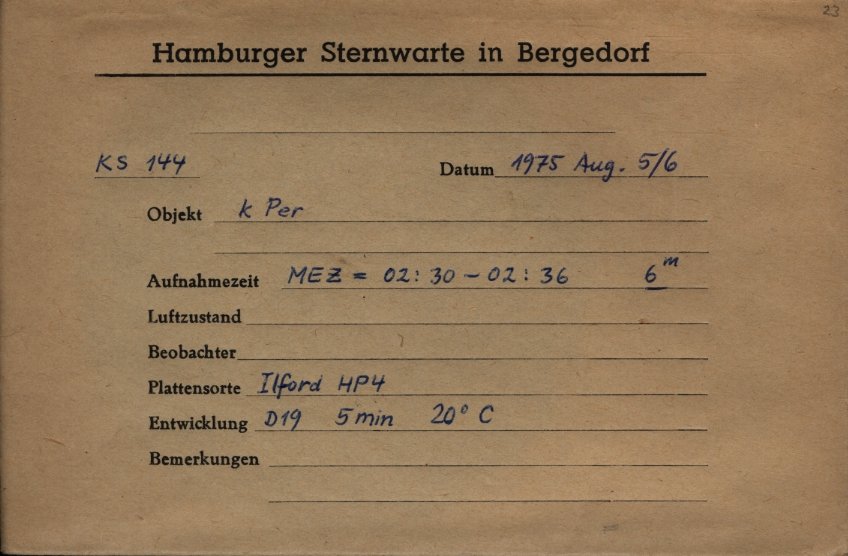 23
Hamburger Sternwarte in Bergedorf
KS 144 Datum 1975 Aug. 5/6
Objekt k Per
Aufnahmezeit MEZ = 02:30 – 02:36 6ᵐ
Luftzustand
Beobachter
Plattensorte Ilford HP4
Entwicklung D19 5min 20° C
Bemerkungen